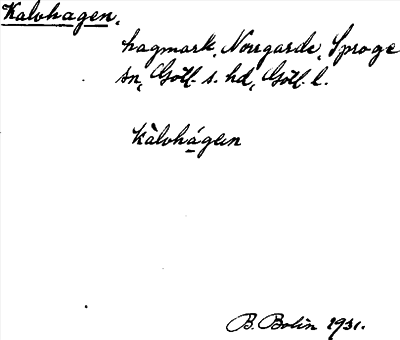 Kalvhagen.
hagmark, Norrgarde, Sproge
sn, Gotl. s. hd, Gotl. l.
Kàlvhágen
B. Bolin 1931.